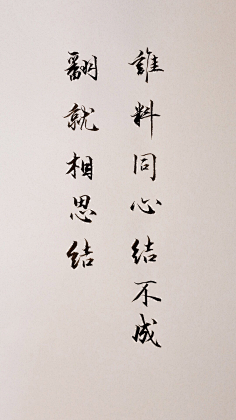 誰料同心结不成
翻就相思结